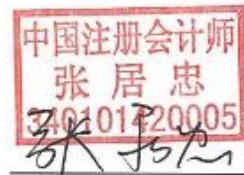 中国注册会计师
张居忠
340101420005
张居忠